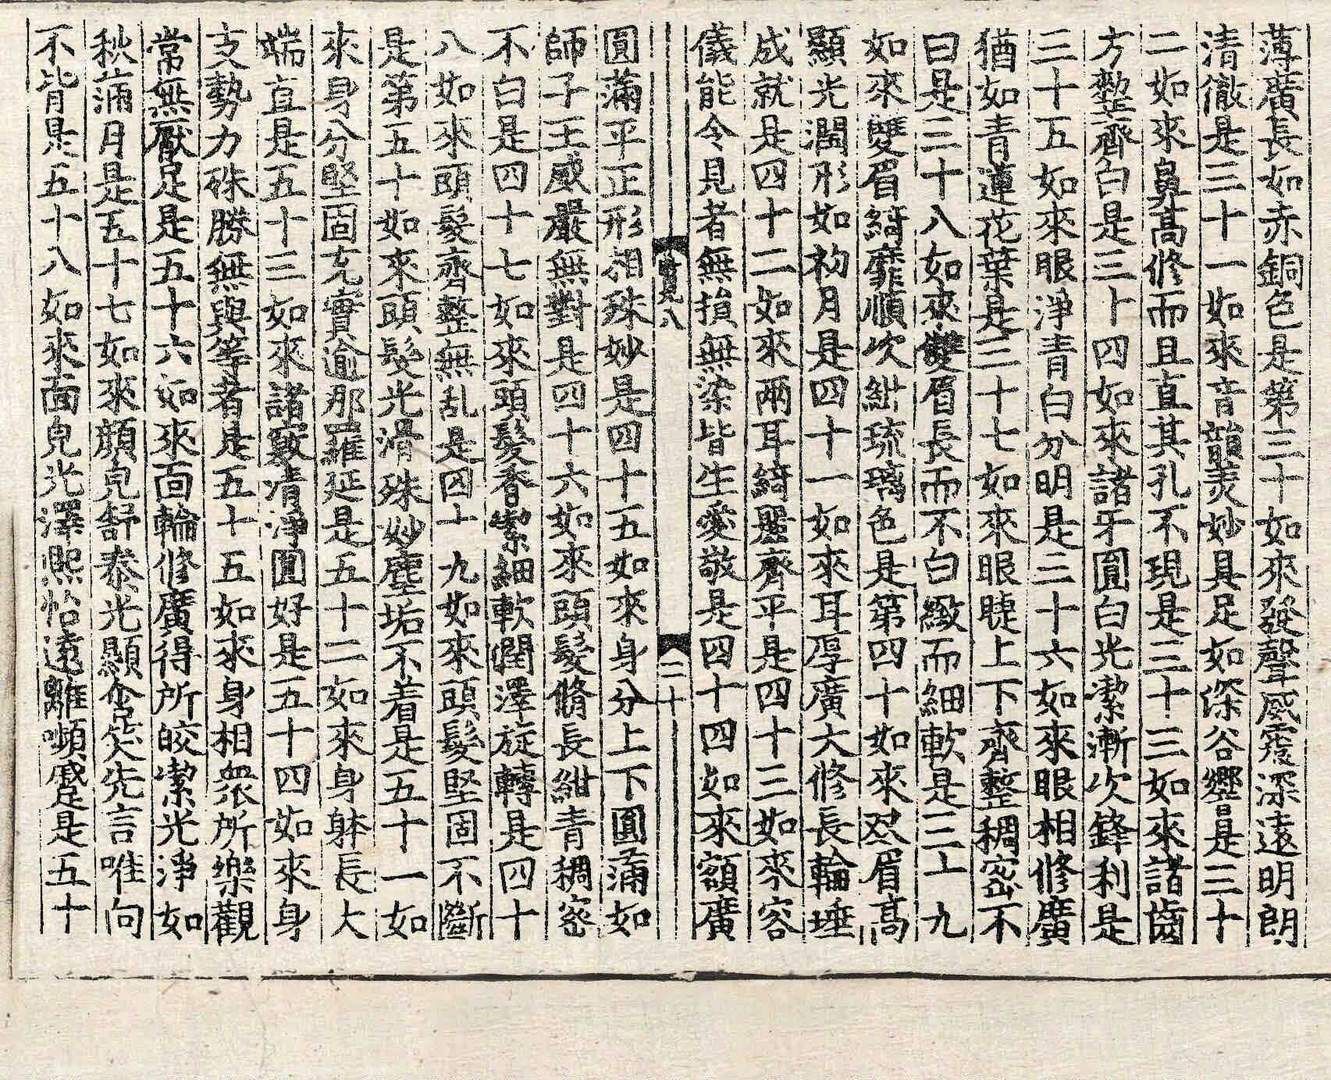 薄廣長如赤銅色是第三十如來發聲威震深遠明朗
清徹是三十一如來音韻美妙具足如深谷響是三十
二如來鼻高修而且直其孔不現是三十三如來諸齒
方整齊白是三十四如來諸牙圓白光潔漸次鋒利是
三十五如來眼淨青白分明是三十六如來眼相修廣
猶如青蓮花葉是三十七如來眼睫上下齊整稠密不
白是三十八如來雙眉長而不白緻而細軟是三十九
如來雙眉綺靡順次紺琉璃色是第四十如來双眉高
顯光潤形如初月是四十一如來耳厚廣大修長輪埵
成就是四十二如來兩耳綺麗齊平是四十三如來容
儀能令見者無損無染皆生愛敬是四十四如來額廣
八
二十
圓滿平正形相殊妙是四十五如來身分上下圓滿如
師子王威嚴無對是四十六如來頭髮脩長紺青稠密
不白是四十七如來頭髮香潔細軟潤澤旋轉是四十
八如來頭髮齊整無乱是四十九如來頭髮堅固不斷
是第五十如來頭髮光滑殊妙塵垢不着是五十一如
來身分堅固充實逾那羅延是五十二如來身躰長大
端直是五十三如來諸竅清淨圓好是五十四如來身
支勢力殊勝無與等者是五十五如來身相衆所樂觀
常無厭足是五十六如來面輪修廣得所皎潔光淨如
秋滿月是五十七如來顔皃舒泰光顯含笑先言唯向
不背是五十八如來面皃光澤熙怡遠離嚬蹙是五十